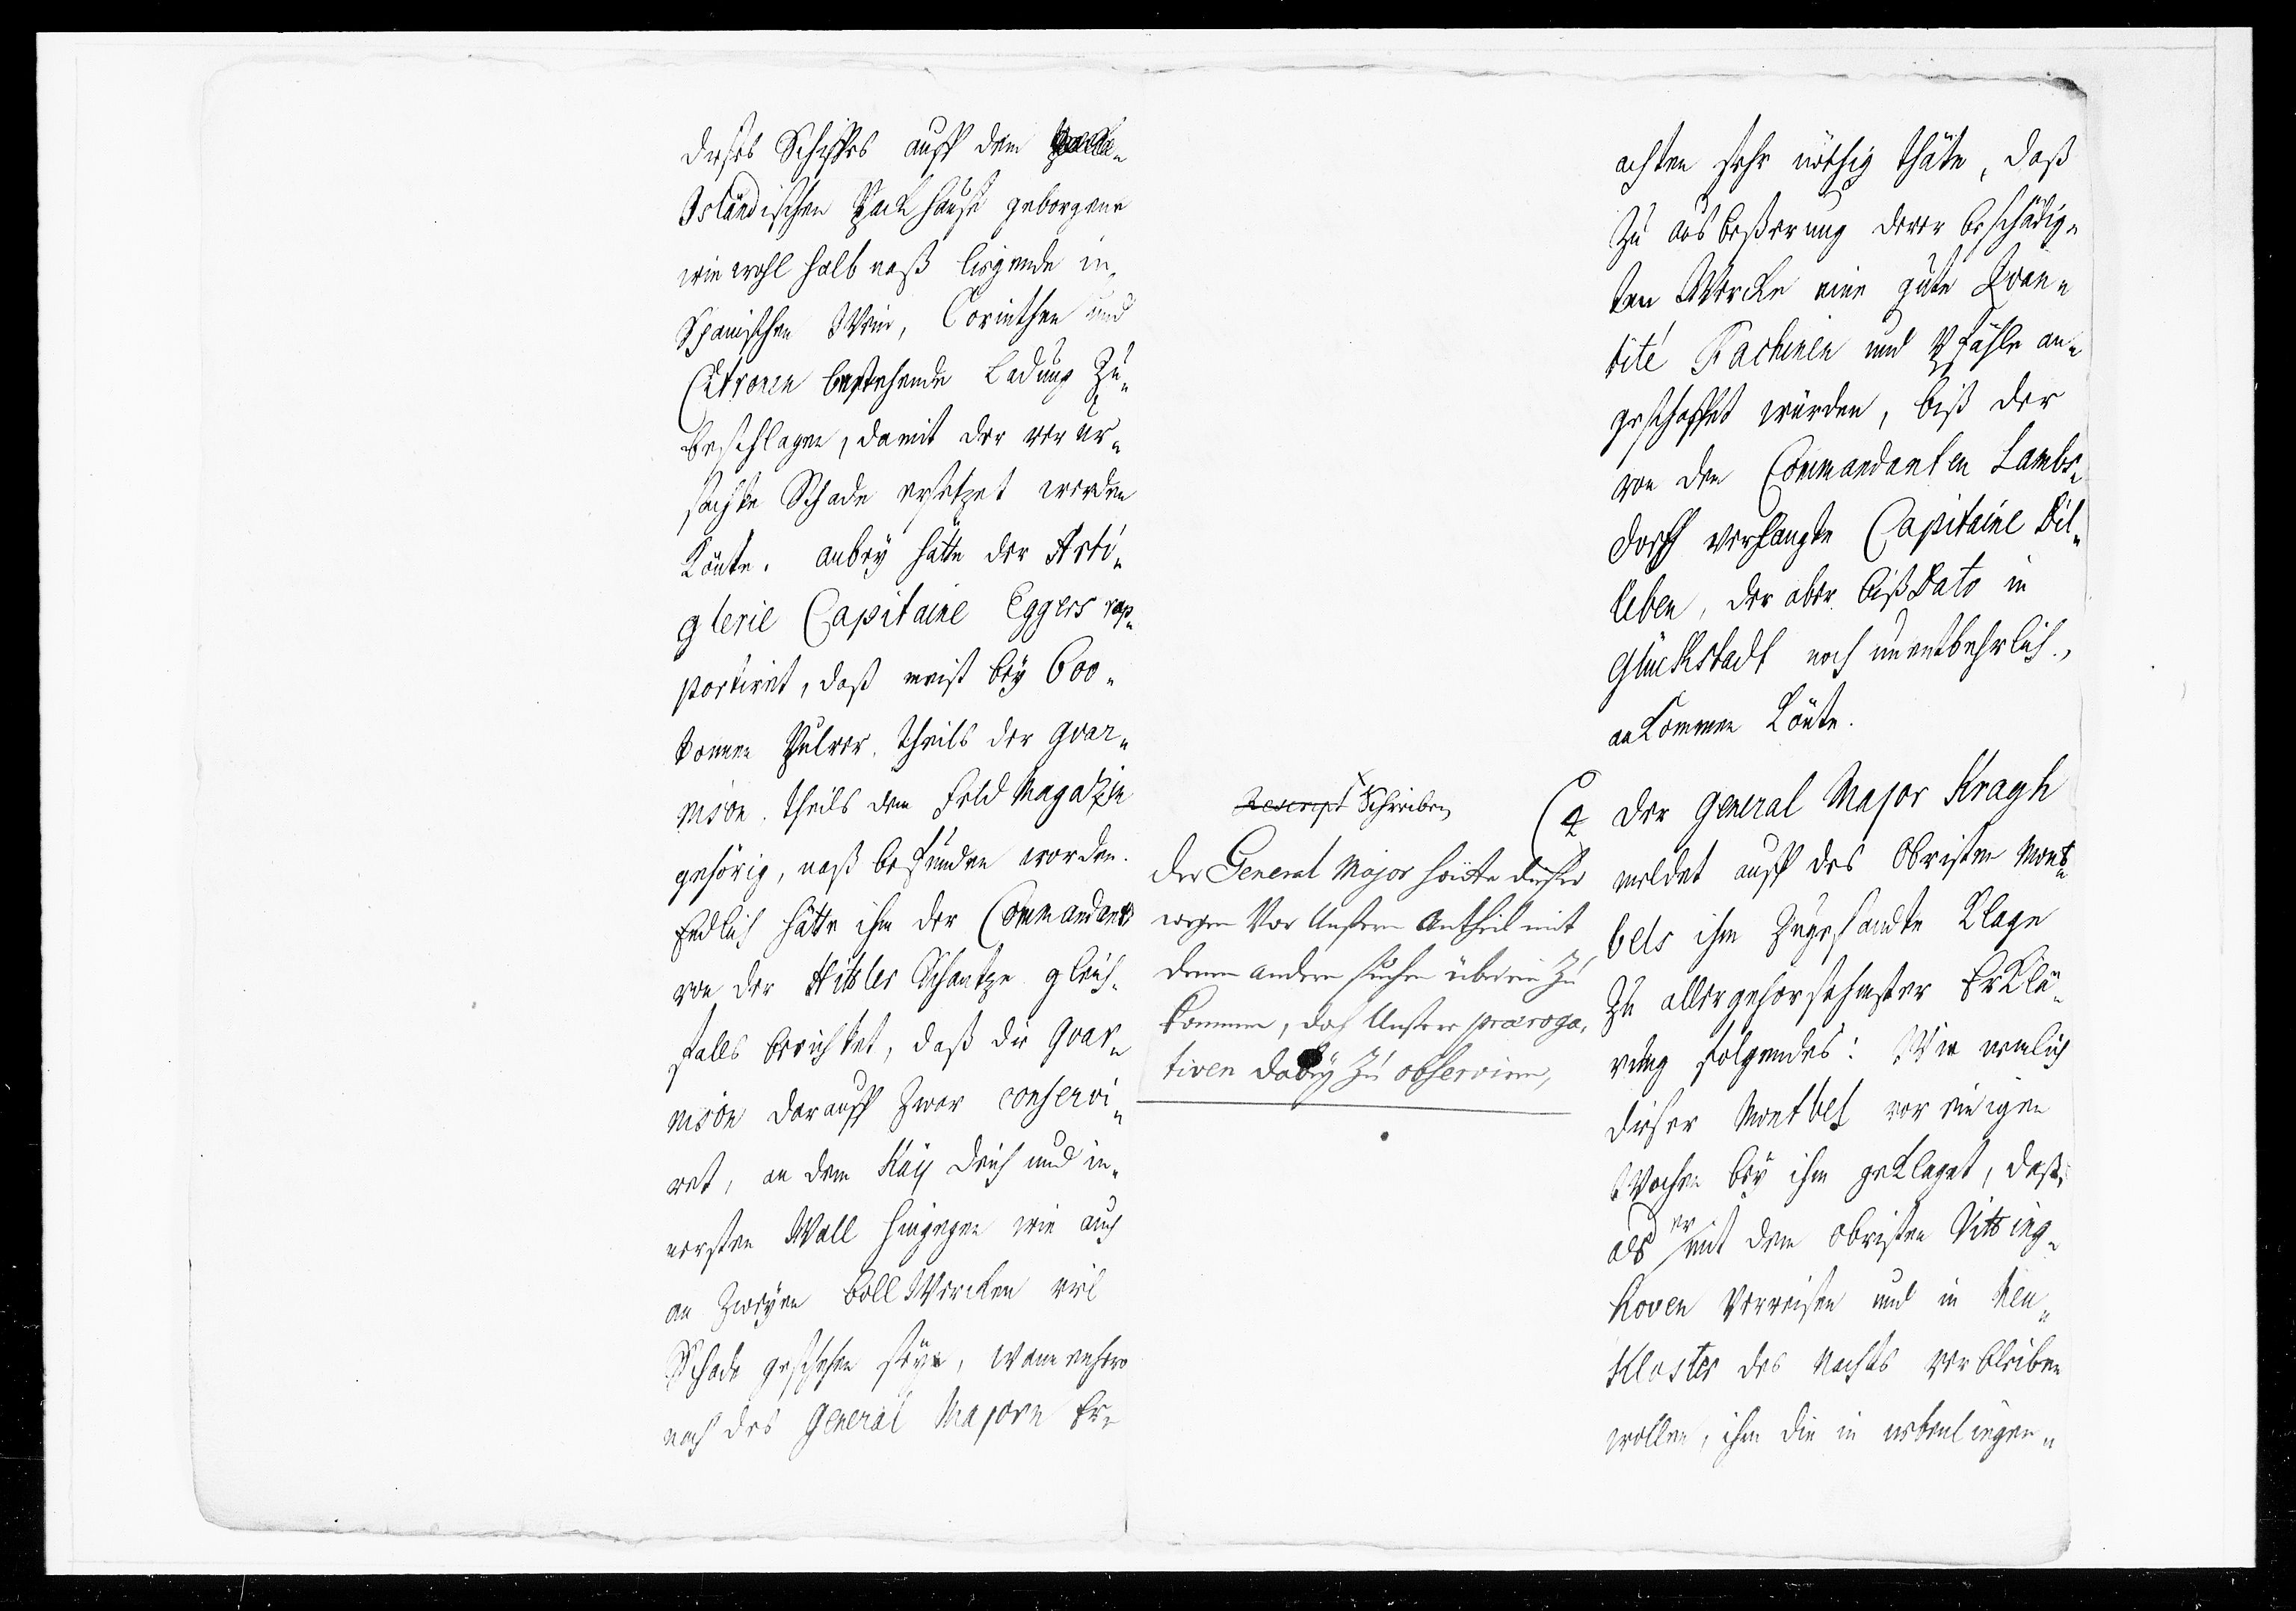 dieses Schiffes auff dem
Isländischen Packhause geborgene
wie wohl halb naß liegende in
Spanischen Wein, Corinthen und
Citronen bestehende Ladung zu
beschlagen, damit der verur-
sachte Schade ersetzet werden
könte. anbey hätte der Arti-
glerie Capitaine Eggers rap-
portiret, daß meist bey 600
tonnen Pulver, theils der Guar-
nison, theils dem Feld Magazin
gehörig, naß befunden worden.
Endlich hätte ihm der Commandant
von der Hitzler Schantze gleich-
falls berichtet, daß die Guar-
nison darauff zwar conservi-
ret, an dem Kay Deich und in-
nersten Wall hingegen wie auch
an zweyen bollWercken viel
Schade geschehen seye, wannenhero
nach des General Majorn Er-
achten sehr nöthig thäte, daß
zu ausbeßerung derer beschädig-
ten Wercke eine gute Quan-
tité Fachinen und Pfähle an-
geschaffet würden, biß der
von dem Commandanten Lambs-
dorff verlangte Capitaine Dil-
leben, der aber biß Dato in
Glückstadt noch unentbehrlich,
ankommen könte.
Rescript Schreiben
Der General Major hätte dieser
wegen Vor Unsern Antheil mit
denen andern suchen überein zu
kommen, doch Unsere præroga-
tiven dabey zu observiren,
(4 Der General Major Kragh
meldet auff des Obristen Mont-
bels ihm zugesandte Klage
zu allergehorsahmster Erklä-
rung folgendes: Wie nemlich
dieser Montbel vor einigen
Wochen bey ihm geklaget, daß,
als er mit dem Obristen Vitting-
hoven Verreisen und in Neu-
Kloster des Nachts verbleiben
wollen, ihm die in